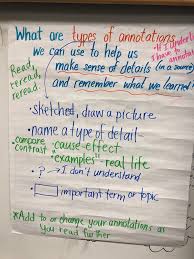 What are types of annotations
we can use to help us
make sense of details (in a source)
and remember what we learned?
*If I underline
I have to
annotate
Read,
reread,
reread.
• sketched, draw a picture
• name a type of detail
• compare contrast • cause-effect
• examples • real life
• ? → I don't understand
• important term or topic
*Add to or change your annotations as
you read further